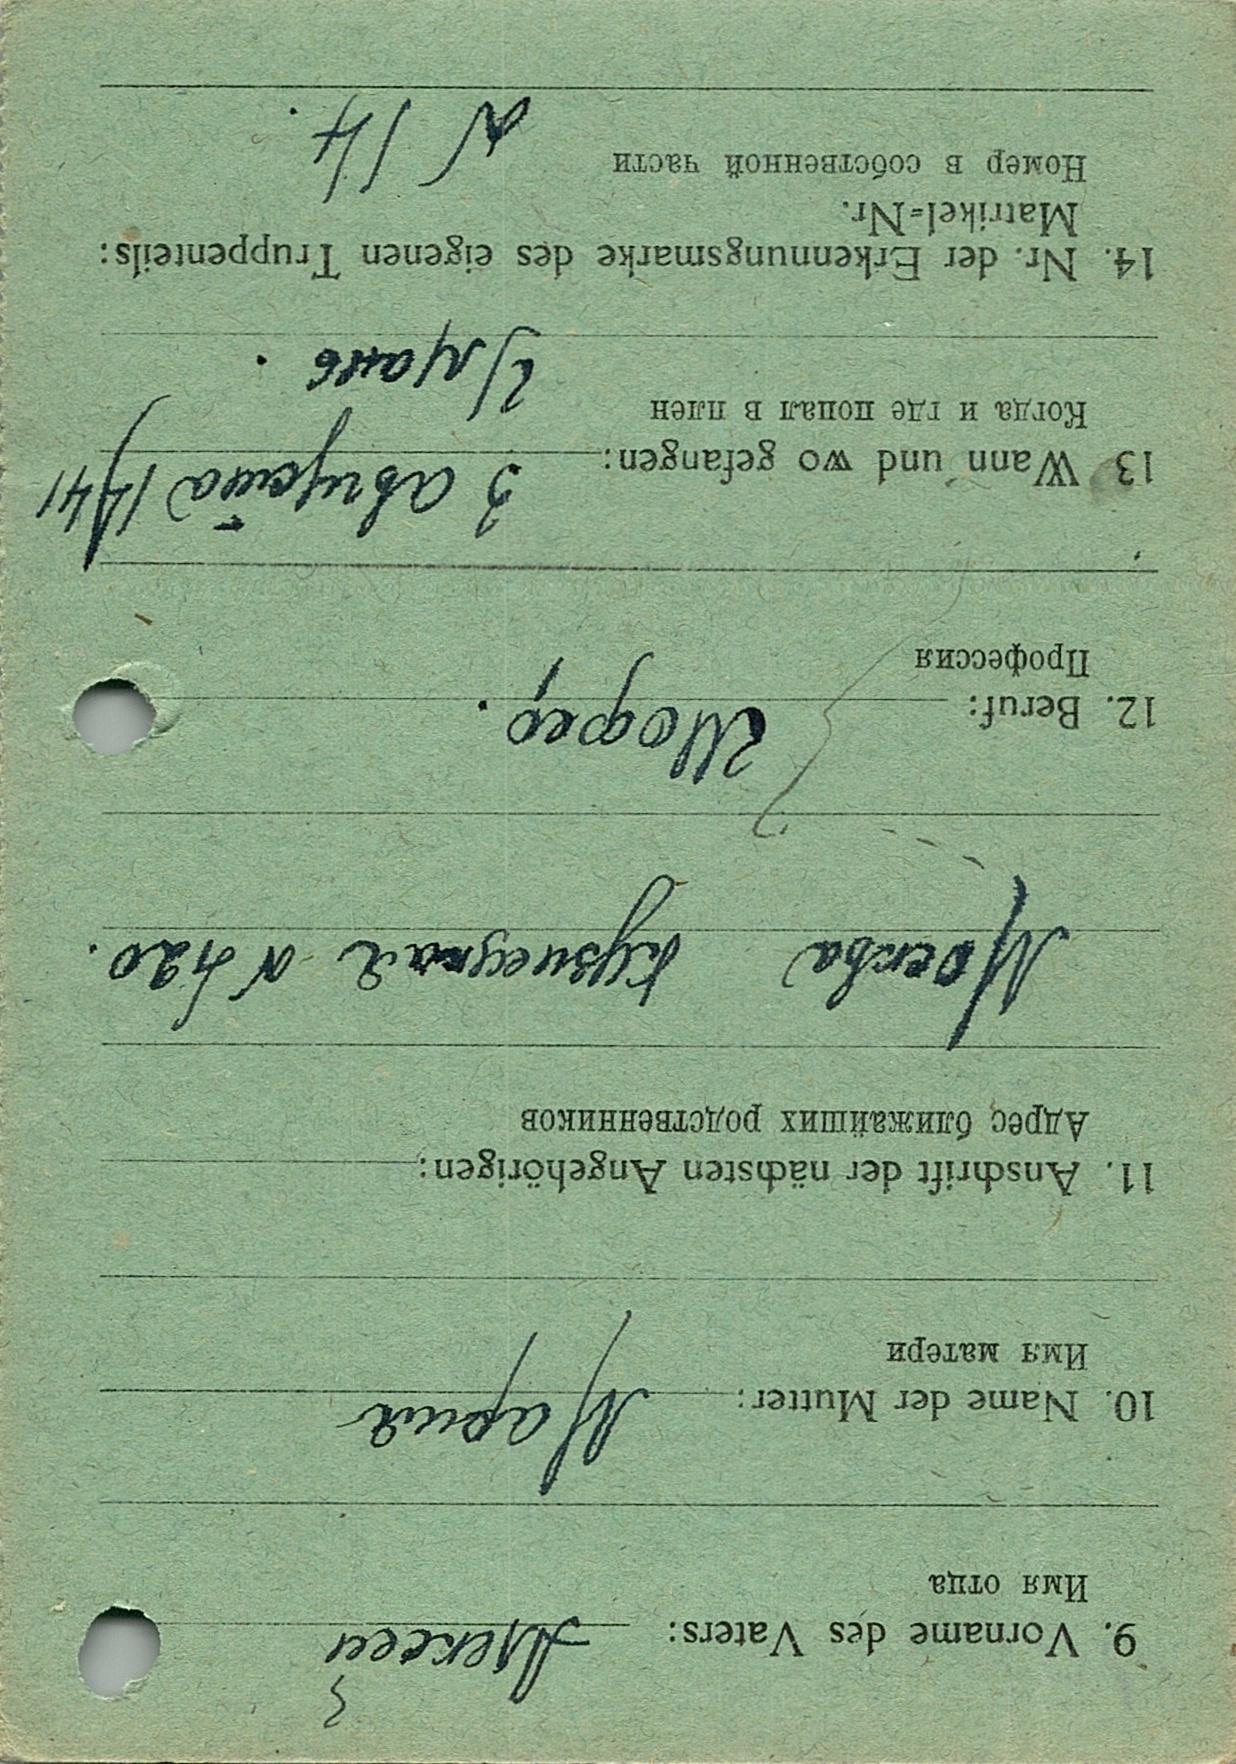 9. Vorname des Vaters: Алексей
Имя отца
10. Name der Mutter: Мария
Имя матери
11. Anschrift der nächsten Angehörigen:
Адрес ближайших родственников
Москва Кузнецкая N
12. Beruf: Шофер.
Профессия
13 Wann und wo gefangen: 3 августа 1941
Когда и где попал в плен
Умань.
14. Nr. der Erkennungsmarke des eigenen Truppenteils:
Matrikel=Nr.
Номер в собственной части
N 14.